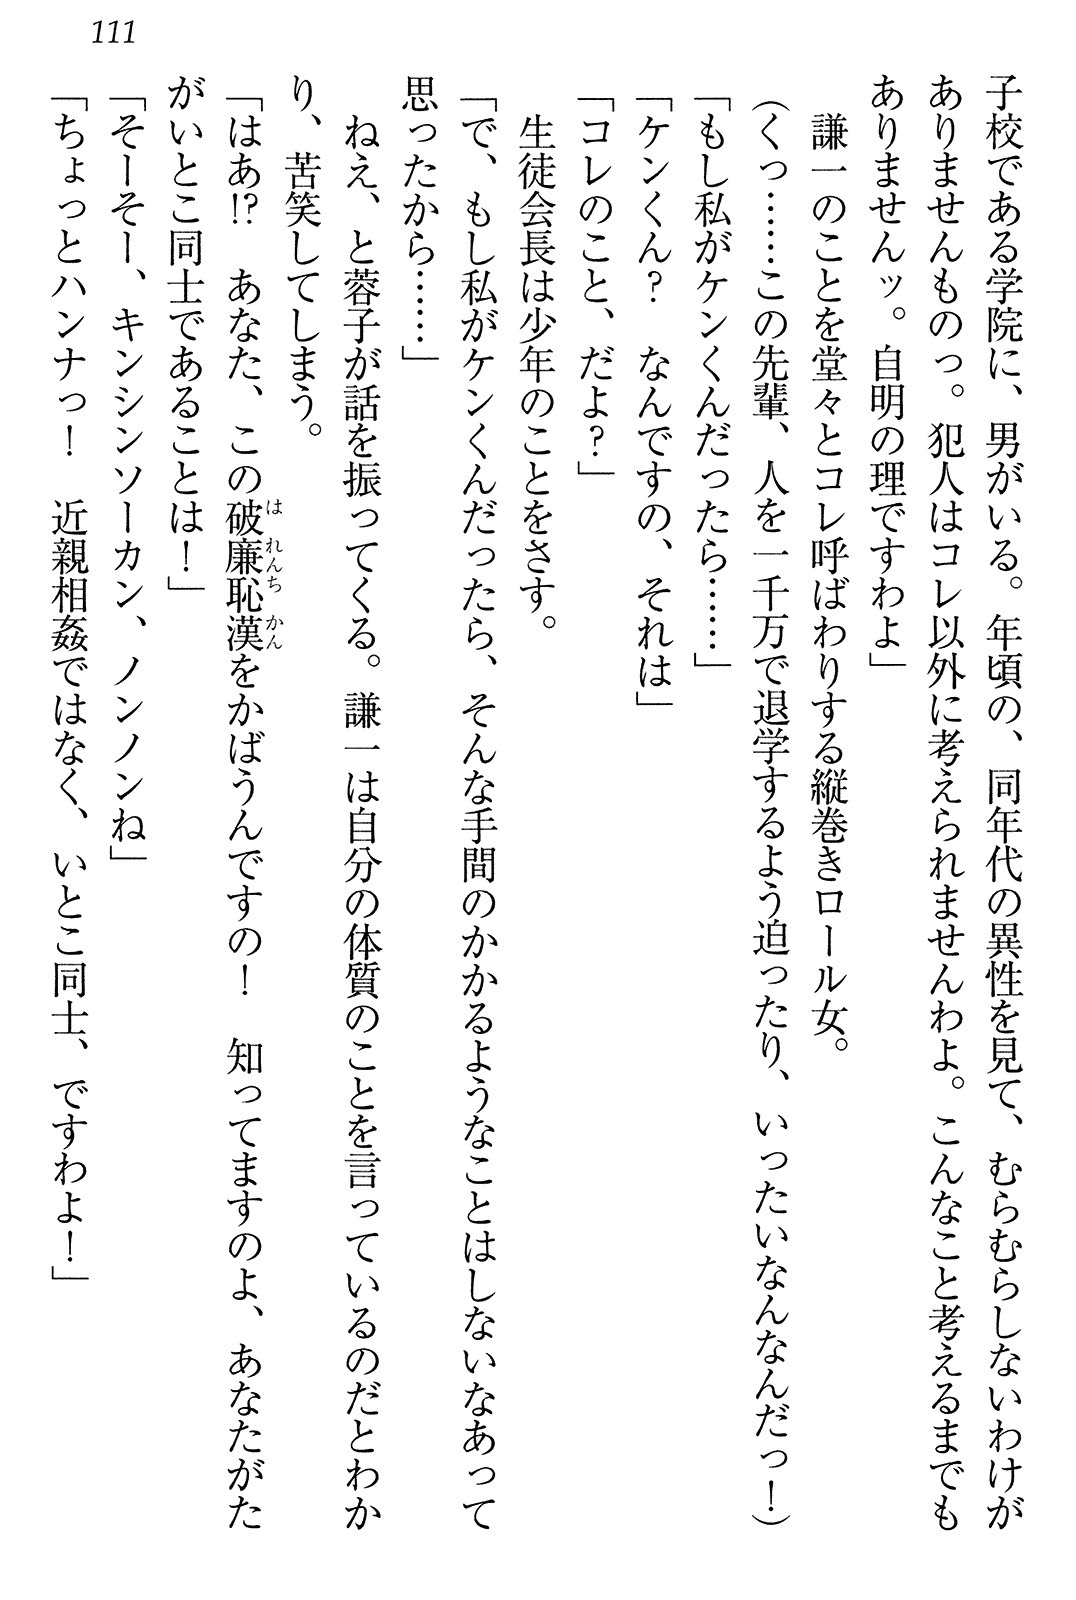 111
子校である学院に、男がいる。年頃の、同年代の異性を見て、むらむらしないわけが
ありませんものっ。犯人はコレ以外に考えられませんわよ。こんなこと考えるまでも
ありませんッ。自明の理ですわよ」
　謙一のことを堂々とコレ呼ばわりする縦巻きロール女。
（くっ……この先輩、人を一千万で退学するよう迫ったり、いったいなんなんだっ！）
「もし私がケンくんだったら……」
「ケンくん？　なんですの、それは」
「コレのこと、だよ？」
　生徒会長は少年のことをさす。
「で、もし私がケンくんだったら、そんな手間のかかるようなことはしないなあって
思ったから……」
　ねえ、と蓉子が話を振ってくる。謙一は自分の体質のことを言っているのだとわか
り、苦笑してしまう。
「はあ!?　あなた、この破廉恥漢をかばうんですの！　知ってますのよ、あなたがた
はれんちかん
がいとこ同士であることは！」
「そーそー、キンシンソーカン、ノンノンね」
「ちょっとハンナっ！　近親相姦ではなく、いとこ同士、ですわよ！」